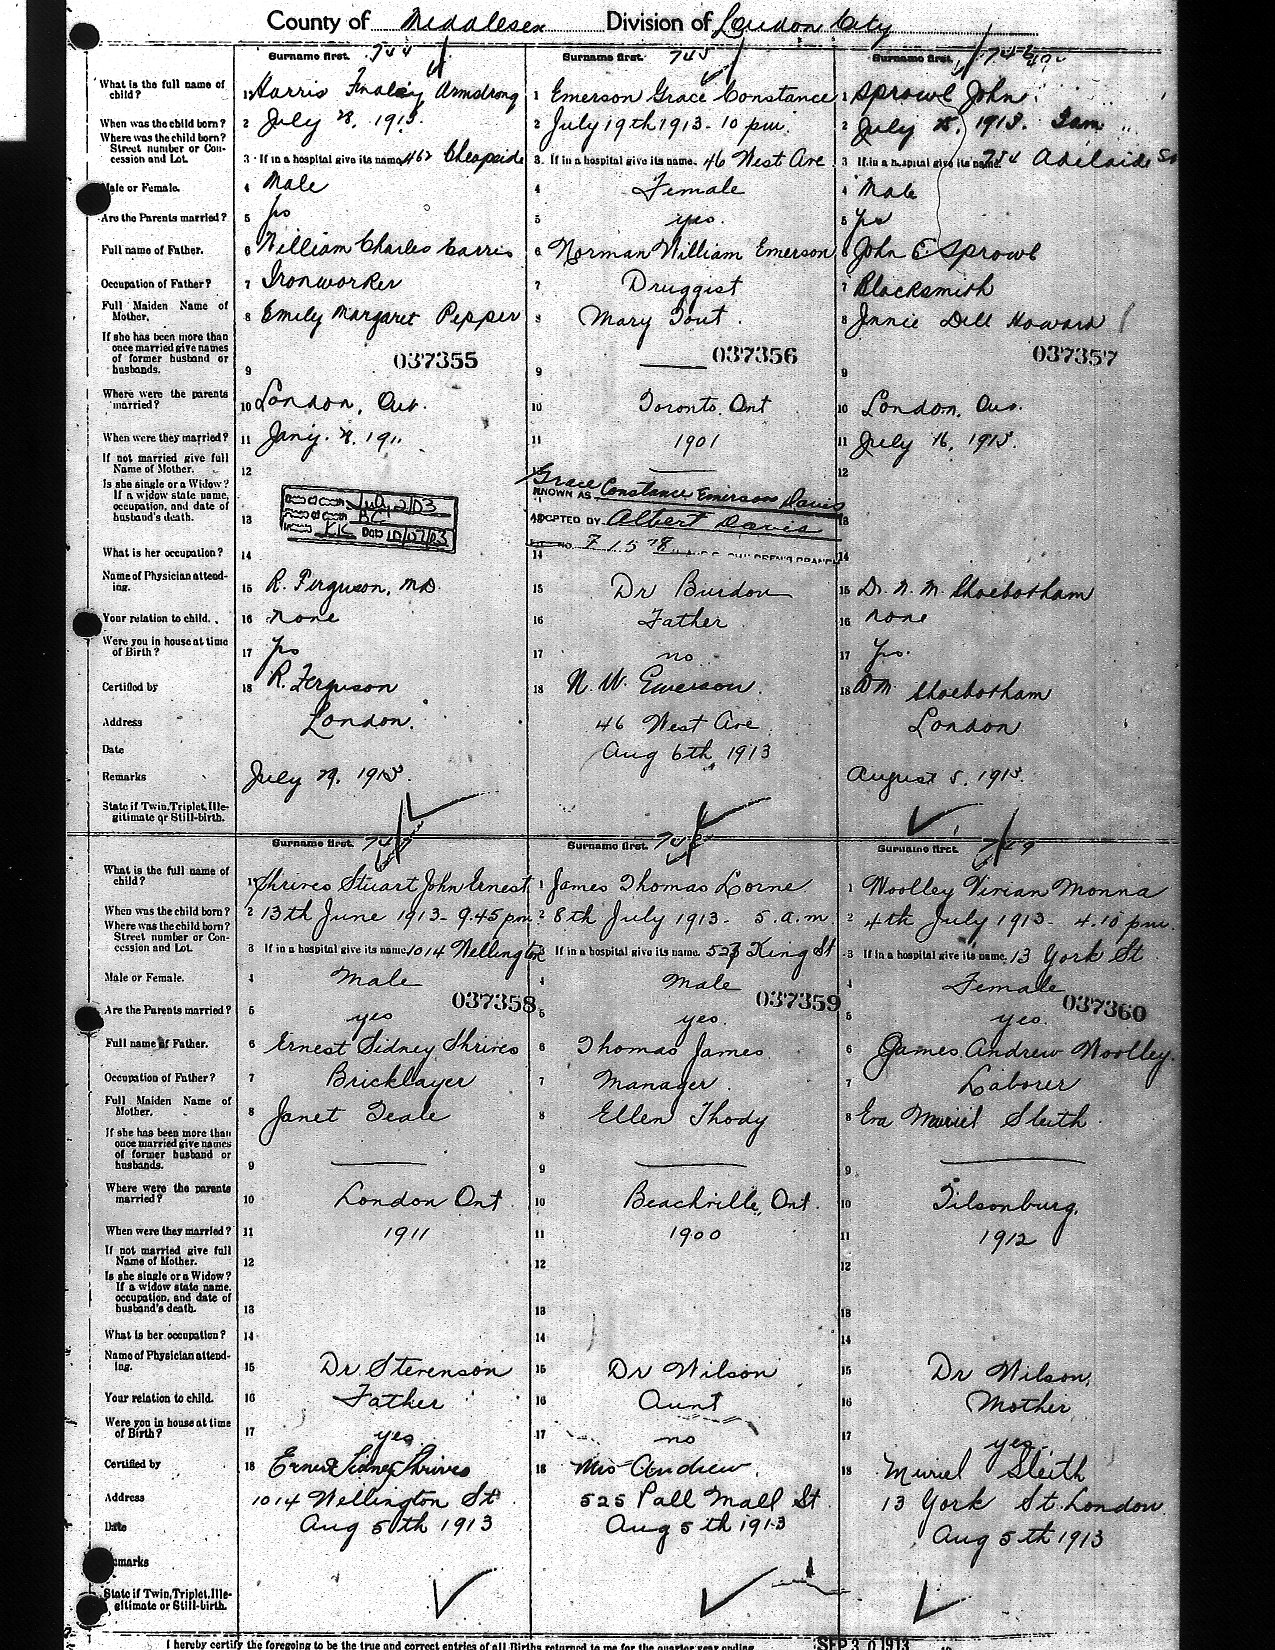 County of Middlesex Division of London City
Surname first. 744
Surname first. 745
Surname first. 746
What is the full name of child?
1 Harris Finaley Armstrong
1 Emerson Grace Constance
1 Sprowl John
When was the child born?
2 July 28, 1913.
2 July 19th 1913 - 10 pm.
2 July 1913. 3 am
Where was the child born? Street number or Concession and Lot.
3 If in a hospital give its name. 462 Cheapside
3. If in a hospital give its name. 46 West Ave
3 If in a hospital give its name. 754 Adelaide St
Male or Female.
4 Male
4 Female
4 Male
Are the Parents married?
5 yes
5 yes.
5 yes
Full name of Father.
6 William Charles Harris
6 Norman William Emerson
6 John E. Sprowl
Occupation of Father?
7 Ironworker
7 Druggist
7 Blacksmith
Full Maiden Name of Mother.
8 Emily Margaret Pepper
8 Mary Tout.
8 Annie Dell Howard
If she has been more than once married give names of former husband or husbands.
037355
037356
037357
9
9
9
Where were the parents married?
10 London, Ont.
10 Toronto, Ont
10 London, Ont.
When were they married?
11 Jany. 1911
11 1901
11 July 16, 1913.
If not married give full Name of Mother.
12
12
Is she single or a Widow? If a widow state name, occupation, and date of husband's death.
13
Date 10/07/03
Grace
KNOWN AS Constance Emerson Davis
ADOPTED BY Albert Davis
13
What is her occupation?
14
14
14
Name of Physician attending.
15 R. Ferguson, M.D.
15 Dr Burdon
15 Dr. N. M. Shoebotham
Your relation to child.
16 none
16 Father
16 none
Were you in house at time of Birth?
17 yes
17 no
17 yes.
Certified by
18 R. Ferguson
18 N. W. Emerson.
18 Shoebotham
Address
London.
46 West Ave
London
Date
Aug 6th, 1913
Remarks
July 29, 1913.
August 5, 1913.
State if Twin, Triplet, Illegitimate or Still-birth.
Surname first. 747
Surname first. 748
Surname first. 749
What is the full name of child?
1 Shrives Stuart John Ernest
1 James Thomas Lorne
1 Woolley Vivian Monna
When was the child born?
2 13th June 1913 - 9.45 pm
2 8th July 1913 - 5. a.m
2 4th July 1913 - 4.10 pm.
Where was the child born? Street number or Concession and Lot.
3 If in a hospital give its name. 1014 Wellington
If in a hospital give its name. 523 King St
3 If in a hospital give its name. 13 York St
Male or Female.
4 Male
4 Male
4 Female
037358
037359
037360
Are the Parents married?
5 yes
5 yes.
5 yes.
Full name of Father.
6 Ernest Sidney Shrives
6 Thomas James
6 James Andrew Woolley.
Occupation of Father?
7 Bricklayer
7 Manager.
7 Laborer
Full Maiden Name of Mother.
8 Janet Teale
8 Ellen Thody
8 Eva Muriel Sleith
If she has been more than once married give names of former husband or husbands.
9
9
9
Where were the parents married?
10 London Ont.
10 Beachville, Ont.
10 Tilsonburg.
When were they married?
11 1911
11 1900
11 1912
If not married give full Name of Mother.
12
12
12
Is she single or a Widow? If a widow state name, occupation, and date of husband's death.
13
13
13
What is her occupation?
14
14
14
Name of Physician attending.
15 Dr. Stevenson
15 Dr Wilson
15 Dr Wilson,
Your relation to child.
16 Father
16 Aunt
16 Mother
Were you in house at time of Birth?
17 yes
17 no
17 yes.
Certified by
18 Ernest Sidney Shrives
18 Mrs Andrew.
18 Muriel Sleith
Address
1014 Wellington St
525 Pall Mall St
13 York St. London
Date
Aug 5th 1913
Aug 5th 1913
Aug 5th 1913
Remarks
State if Twin, Triplet, Illegitimate or Still-birth.
I hereby certify the foregoing to be the true and correct entries of all Births returned to me for the quarter year ending SEP 30 1913